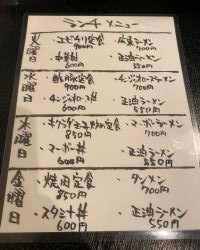 ランチメニュー
火曜日
・エビチリ定食 900円
・広東ラーメン 700円
・中華丼 600円
・正油ラーメン 550円
水曜日
・酢豚定食 900円
・チンジャオロースラーメン 700円
・チンジャオロース丼 600円
・正油ラーメン 550円
木曜日
玉子炒定食 850円
・マーボーラーメン 700円
・マーボー丼 600円
・正油ラーメン 550円
金曜日
・焼肉定食 850円
・タンメン 700円
・スタミナ丼 600円
・正油ラーメン 550円